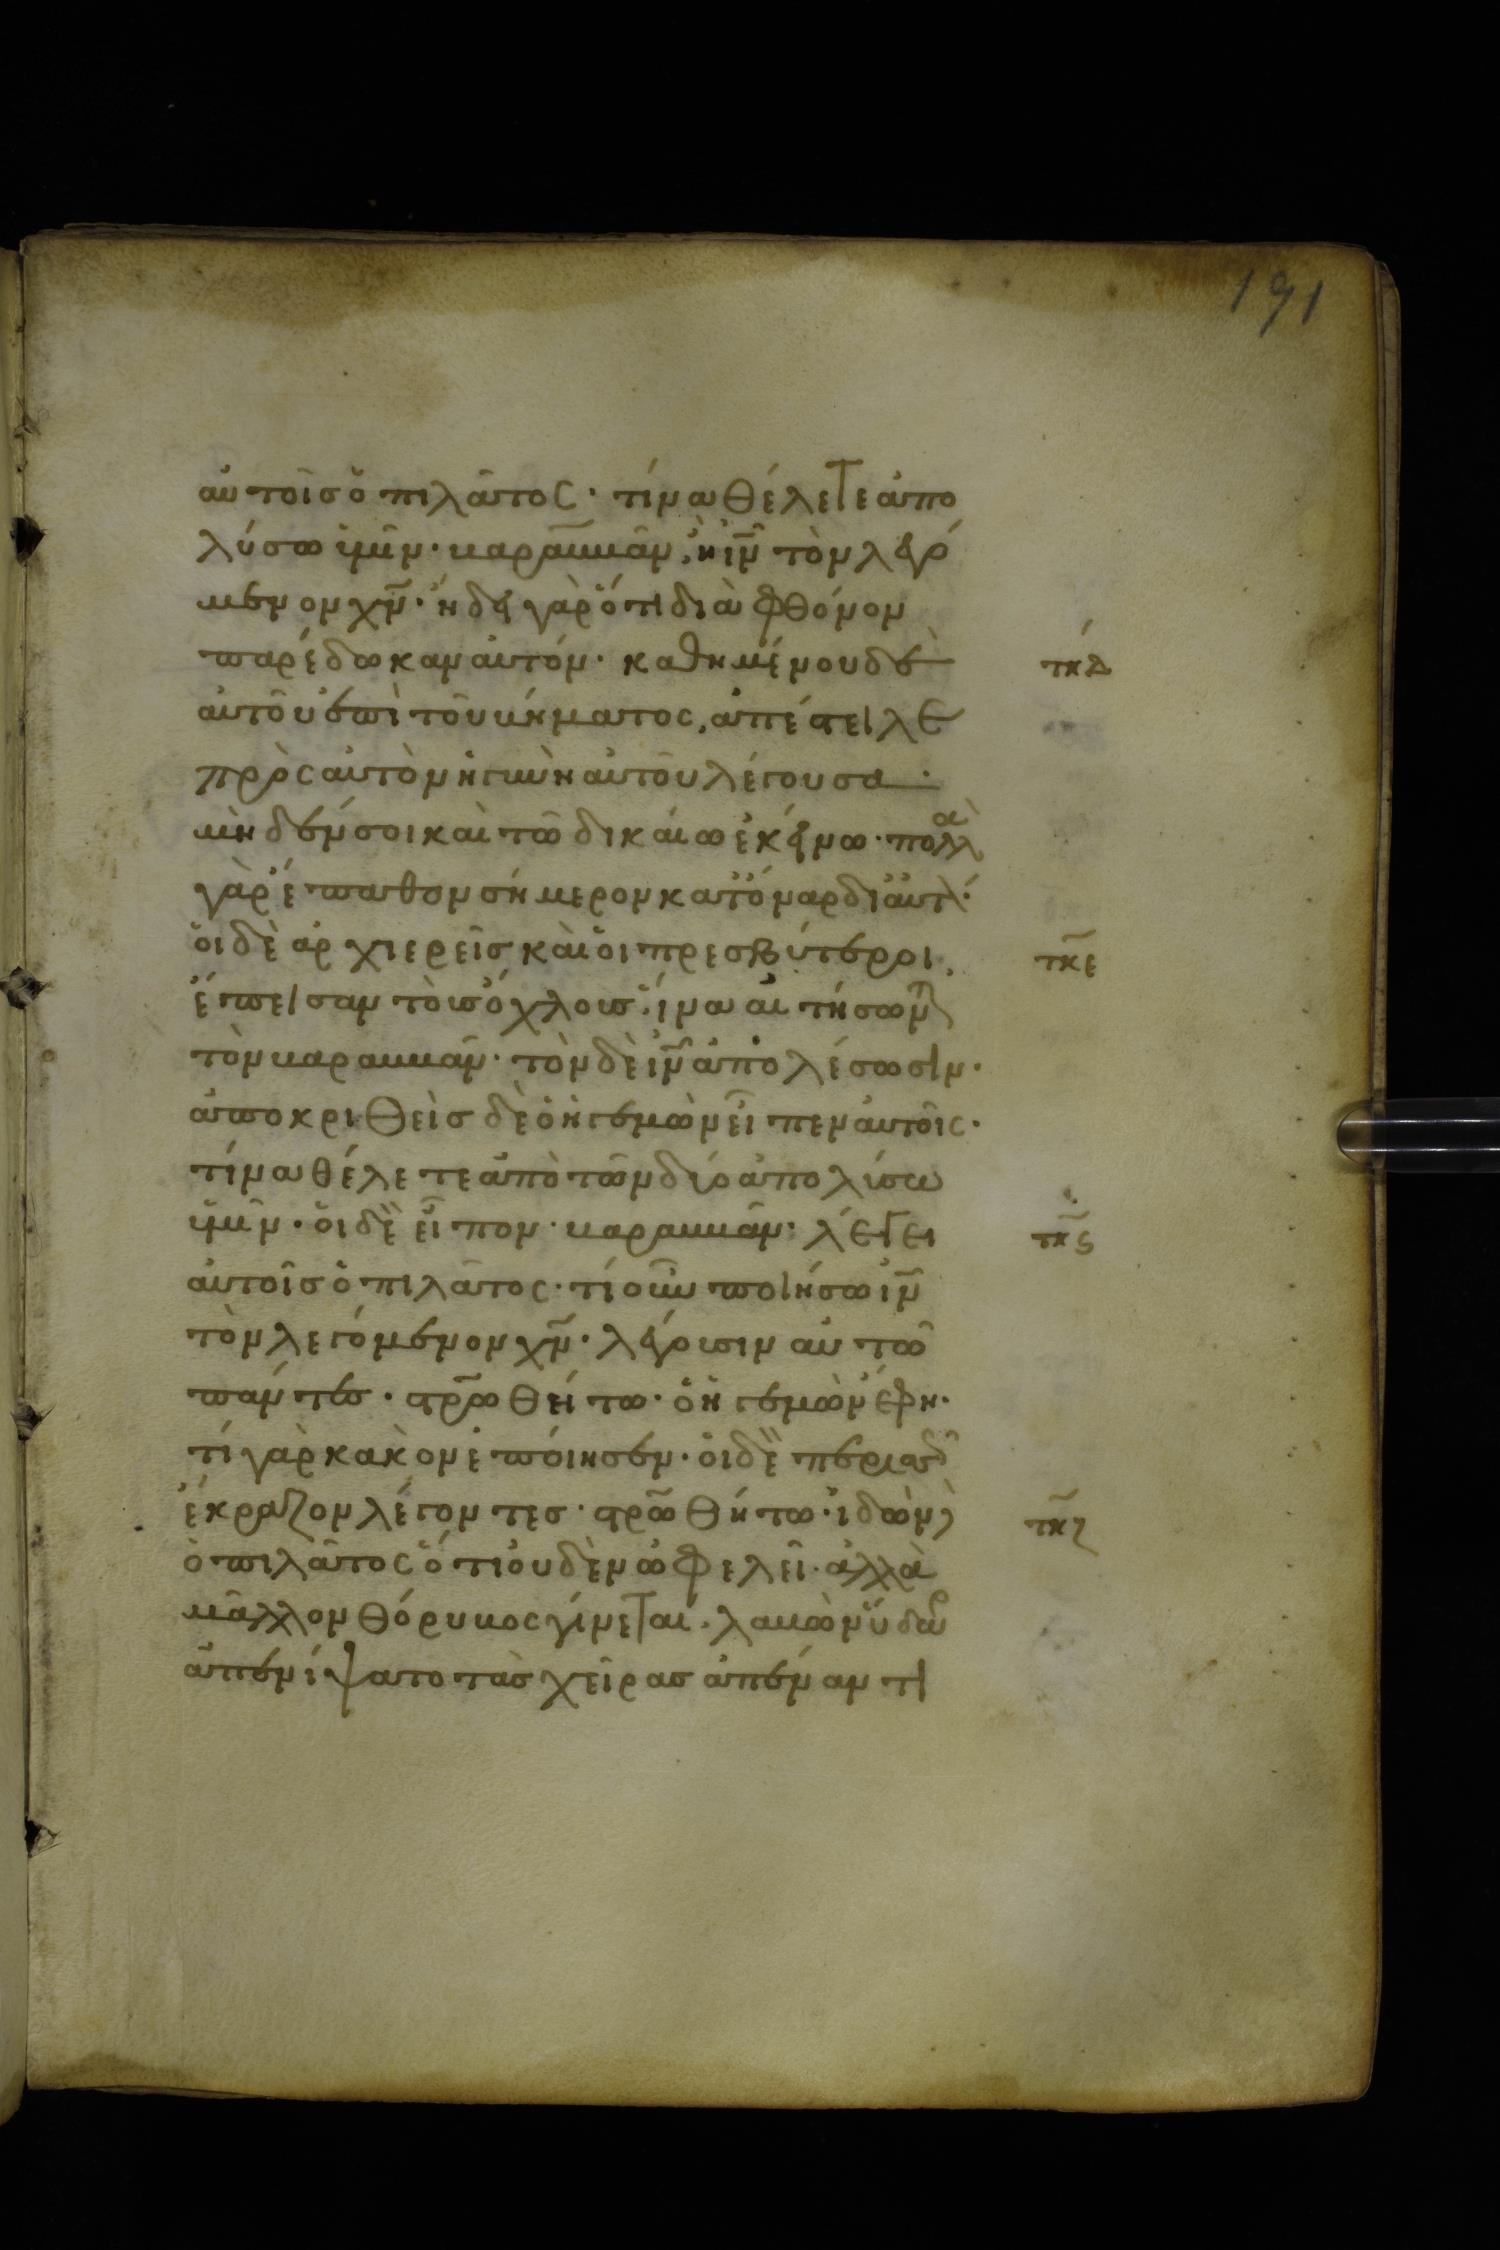 191
αὐτοῖς ὁ πιλᾶτος· τίνα θέλετε ἀπο
λύσω ὑμῖν· βαραββᾶν, ἢ ιν̅ τὸν λεγό
μενον χν̅· ἤδει γὰρ ὅτι διὰ φθόνον
παρέδωκαν αὐτόν· καθημένου δὲ
τιδ
αὐτοῦ ἐπὶ τοῦ βήματος, ἀπέστειλε
πρὸς αὐτὸν ἡ γυνὴ αὐτοῦ λέγουσα·
μηδέν σοι καὶ τῶ δικαίω ἐκείνω· πολλὰ
γὰρ ἔπαθον σήμερον κατ' ὄναρ δι' αὐτόν·
οἱ δὲ ἀρχιερεῖς καὶ οἱ πρεσβύτεροι,
τκε
ἔπεισαν τοὺς ὄχλους ἵνα αἰτήσων
τὸν βαραββᾶν· τὸν δὲ ιν̅ ἀπολέσωσιν·
ἀποκριθεὶς δὲ ὁ ἡγεμὼν εἶπεν αὐτοῖς·
τίνα θέλετε ἀπὸ τῶν δύο ἀπολύσω
ὑμῖν· οἱ δὲ εἶπον· βαραββᾶν· λέγει
τκϛ
αὐτοῖς ὁ πιλᾶτος· τί οὖν ποιήσω ιν̅
τὸν λεγόμενον χν̅· λέγουσιν αὐτῶ
πάντες· στρωθήτω· ὁ ἡγεμὼν ἔφη·
τί γὰρ κακὸν ἐποίησεν· οἱ δὲ περισσῶς
ἔκραζον λέγοντες· στρωθήτω· ἰδὼν δὲ
τκζ
ὁ πιλᾶτος ὅτι οὐδὲν ὠφελεῖ· ἀλλὰ
μᾶλλον θόρυβος γίνεται· λαβὼν ὕδωρ
ἀπενίψατο τὰς χεῖρας ἀπέναντι